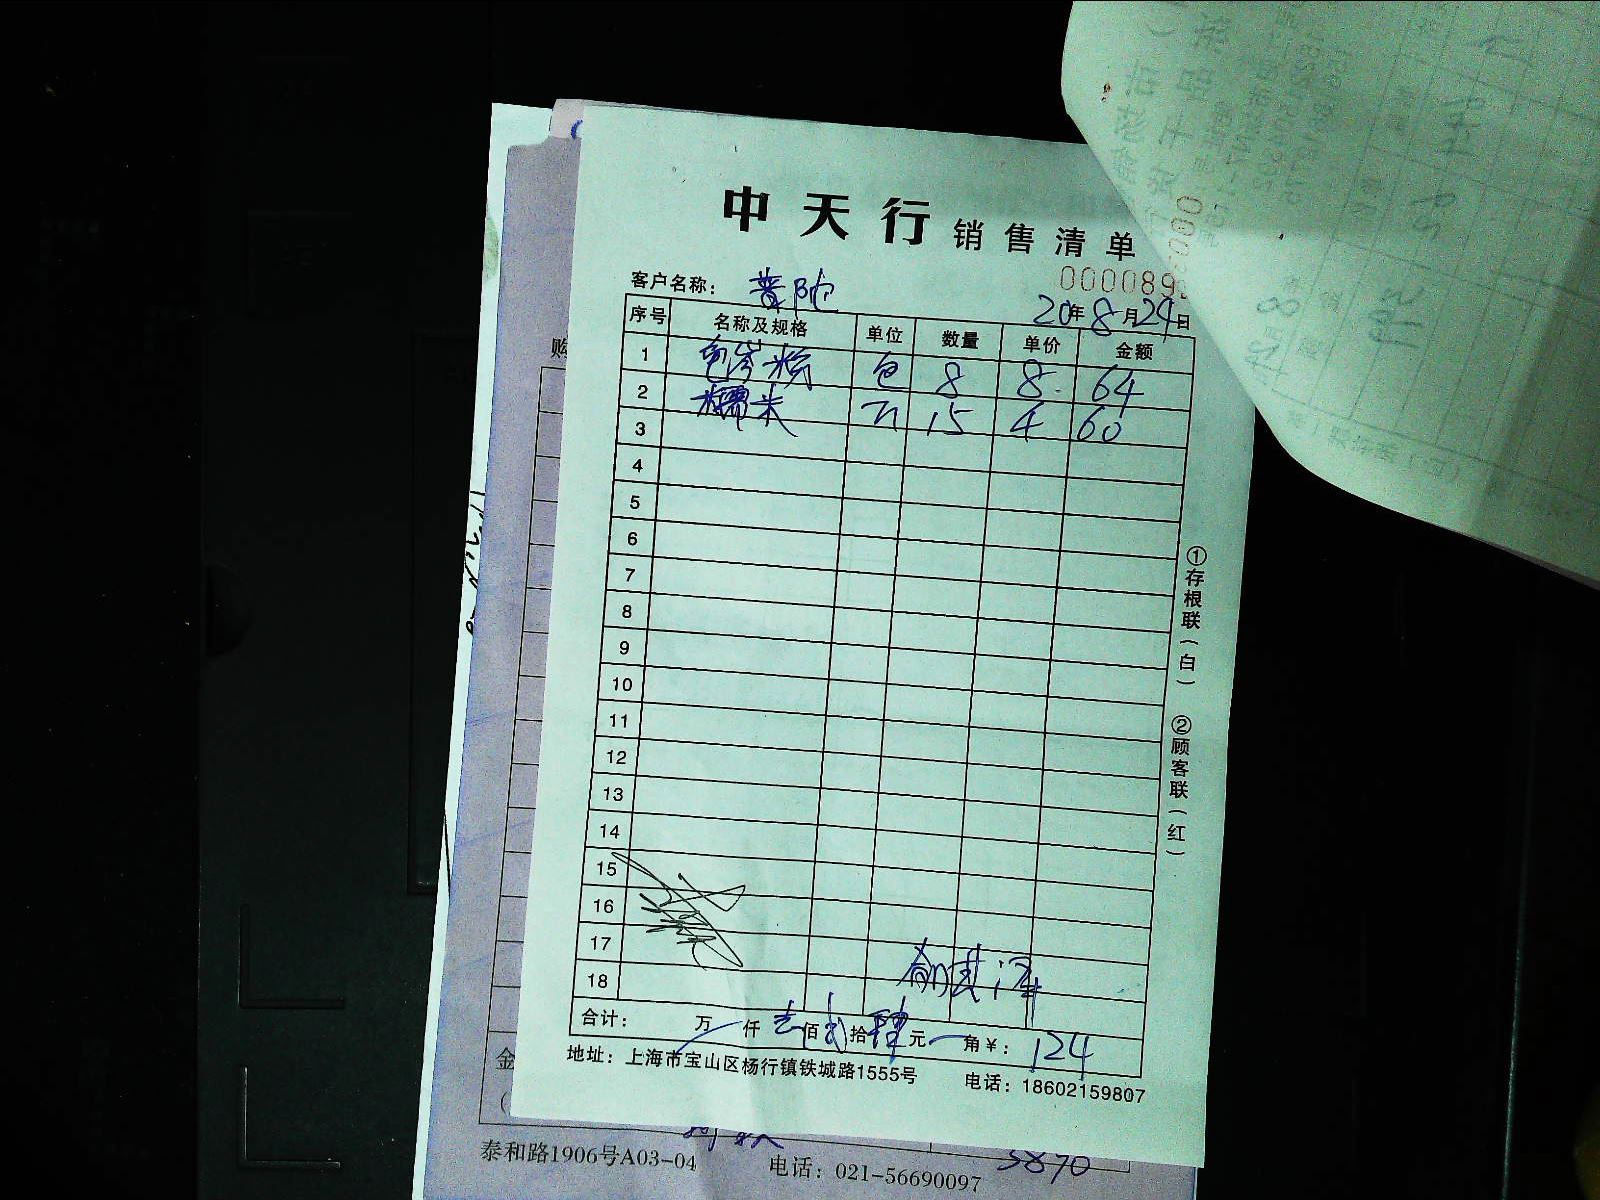 中天行 销售清单
000089
客户名称： 普陀
20年8月24日
序号 名称及规格 单位 数量 单价 金额
1 包 8 8 64
2 糯米 斤 15 4 60
3
4
5
6
7
8
9
10
11
12
13
14
15
16
17
18
合计： 万 仟 壱佰 弍拾 肆元 角￥： 124
地址：上海市宝山区杨行镇铁城路1555号 电话：18602159807
①存根联（白） ②顾客联（红）
购
金
泰和路1906号A03-04 电话：021-56690097
3870